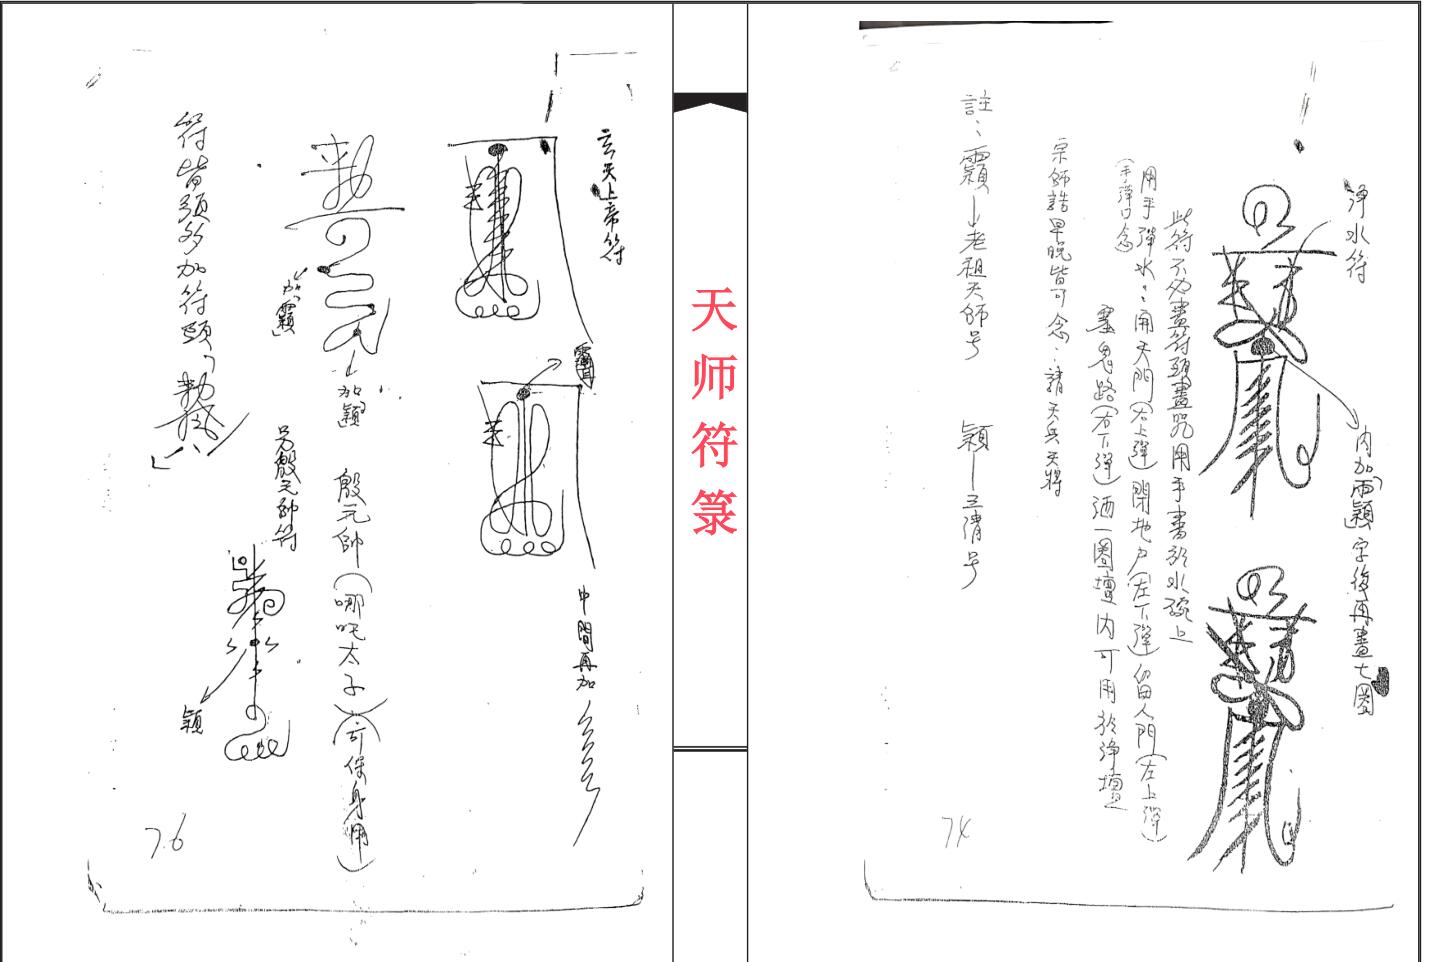 淨水符
內加「霝頴」字後再畫七圈
此符不必畫符頭畫咒用手書於水碗上
用手彈水：開天門（右上彈）閉地戶（左下彈）留人門（左上彈）
（手彈口念）
塞鬼路（右下彈）洒一圈壇內可用於淨壇
宗師誥早晚皆可念：請天兵天將
註：霝頴—老祖天師号
頴—三清号
74
天师符箓
玄天上帝符
中間再加
勅
加「霝頴」
加「頴」
殷元帥（哪吒太子）（可保身用）
另殷元帥符
頴
符皆須多加符頭
76